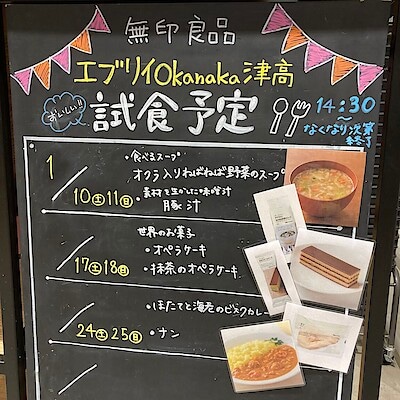 無印良品
エブリイOkanaka津高
おいしい!!
試食予定
14:30
〜
なくなり次第
終了
1/10(土)11(日)
・食べるスープ
オクラ入りねばねば野菜のスープ
・素材を生かした味噌汁
豚汁
/17(土)18(日)
世界のお菓子
・オペラケーキ
・抹茶のオペラケーキ
/24(土)25(日)
・ほたてと海老のビスクカレー
・ナン
/